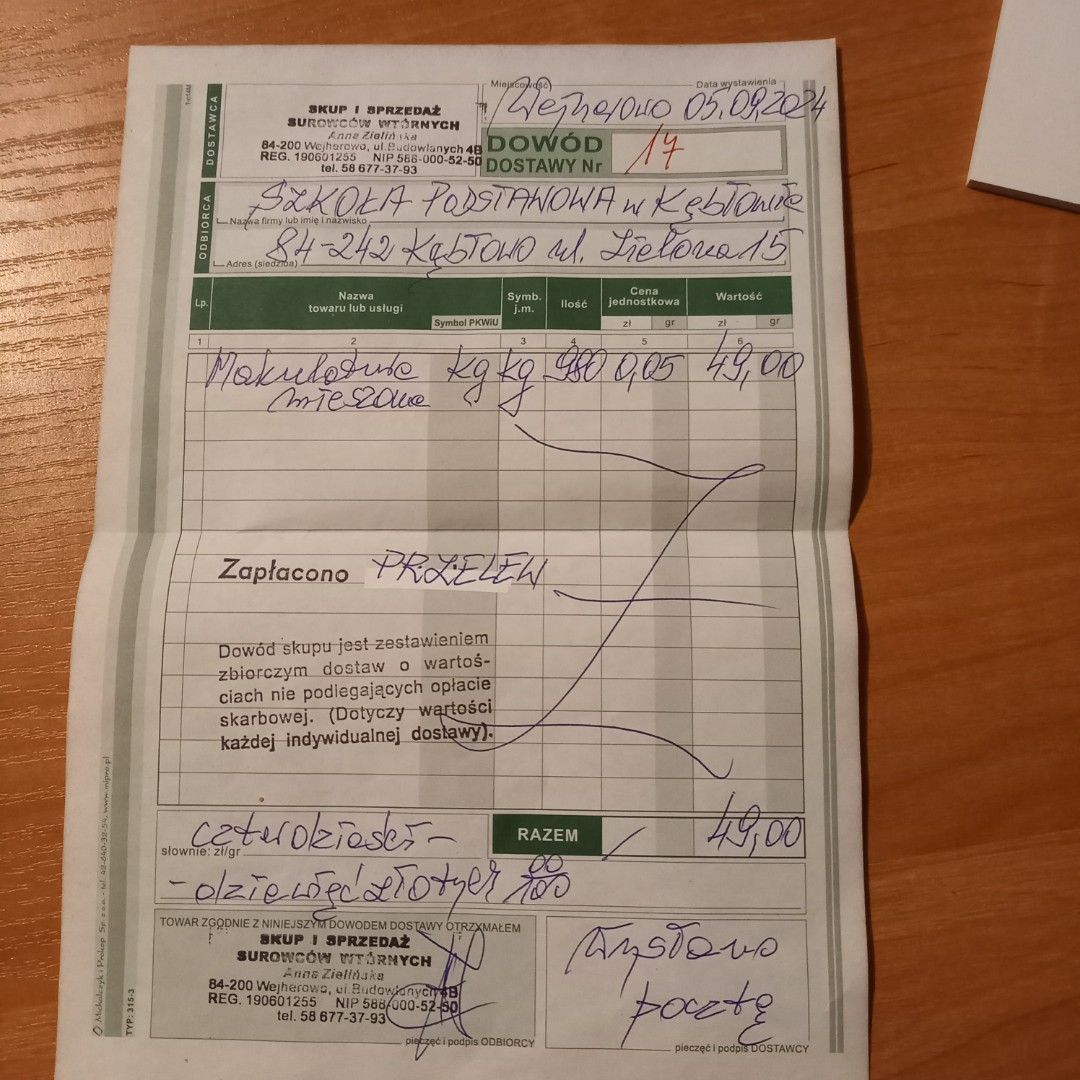 Miejscowość Data wystawienia
Wejherowo 05.09.2024
DOSTAWCA
SKUP I SPRZEDAŻ
SUROWCÓW WTÓRNYCH
Anna Zielińska
84-200 Wejherowo, ul.Budowlanych 4B
REG. 190601255 NIP 588-000-52-50
tel. 58 677-37-93
DOWÓD
DOSTAWY Nr 17
ODBIORCA
SZKOŁA PODSTAWOWA w Kębłowie
Nazwa firmy lub imię i nazwisko
84-242 Kębłowo ul. Zielona 15
Adres (siedziba)
Lp. Nazwa towaru lub usługi Symbol PKWiU Symb. j.m. Ilość Cena jednostkowa zł gr Wartość zł gr
1 2 3 4 5 6
Makulatura kg kg 980 0,05 49,00
mieszana
Zapłacono PRZELEW
Dowód skupu jest zestawieniem
zbiorczym dostaw o wartoś-
ciach nie podlegających opłacie
skarbowej. (Dotyczy wartości
każdej indywidualnej dostawy).
czterdzieści-
słownie: zł/gr
RAZEM 49,00
-dziewięć złotych 00/100
TOWAR ZGODNIE Z NINIEJSZYM DOWODEM DOSTAWY OTRZYMAŁEM
SKUP I SPRZEDAŻ
SUROWCÓW WTÓRNYCH
Anna Zielińska
84-200 Wejherowo, ul.Budowlanych 4B
REG. 190601255 NIP 588-000-52-50
tel. 58 677-37-93
pieczęć i podpis ODBIORCY
Wysłano
pocztą
pieczęć i podpis DOSTAWCY
© Michalczyk i Prokop Sp. z o.o. - tel. 42-640-32-54, www.mipro.pl
TYP: 315-3